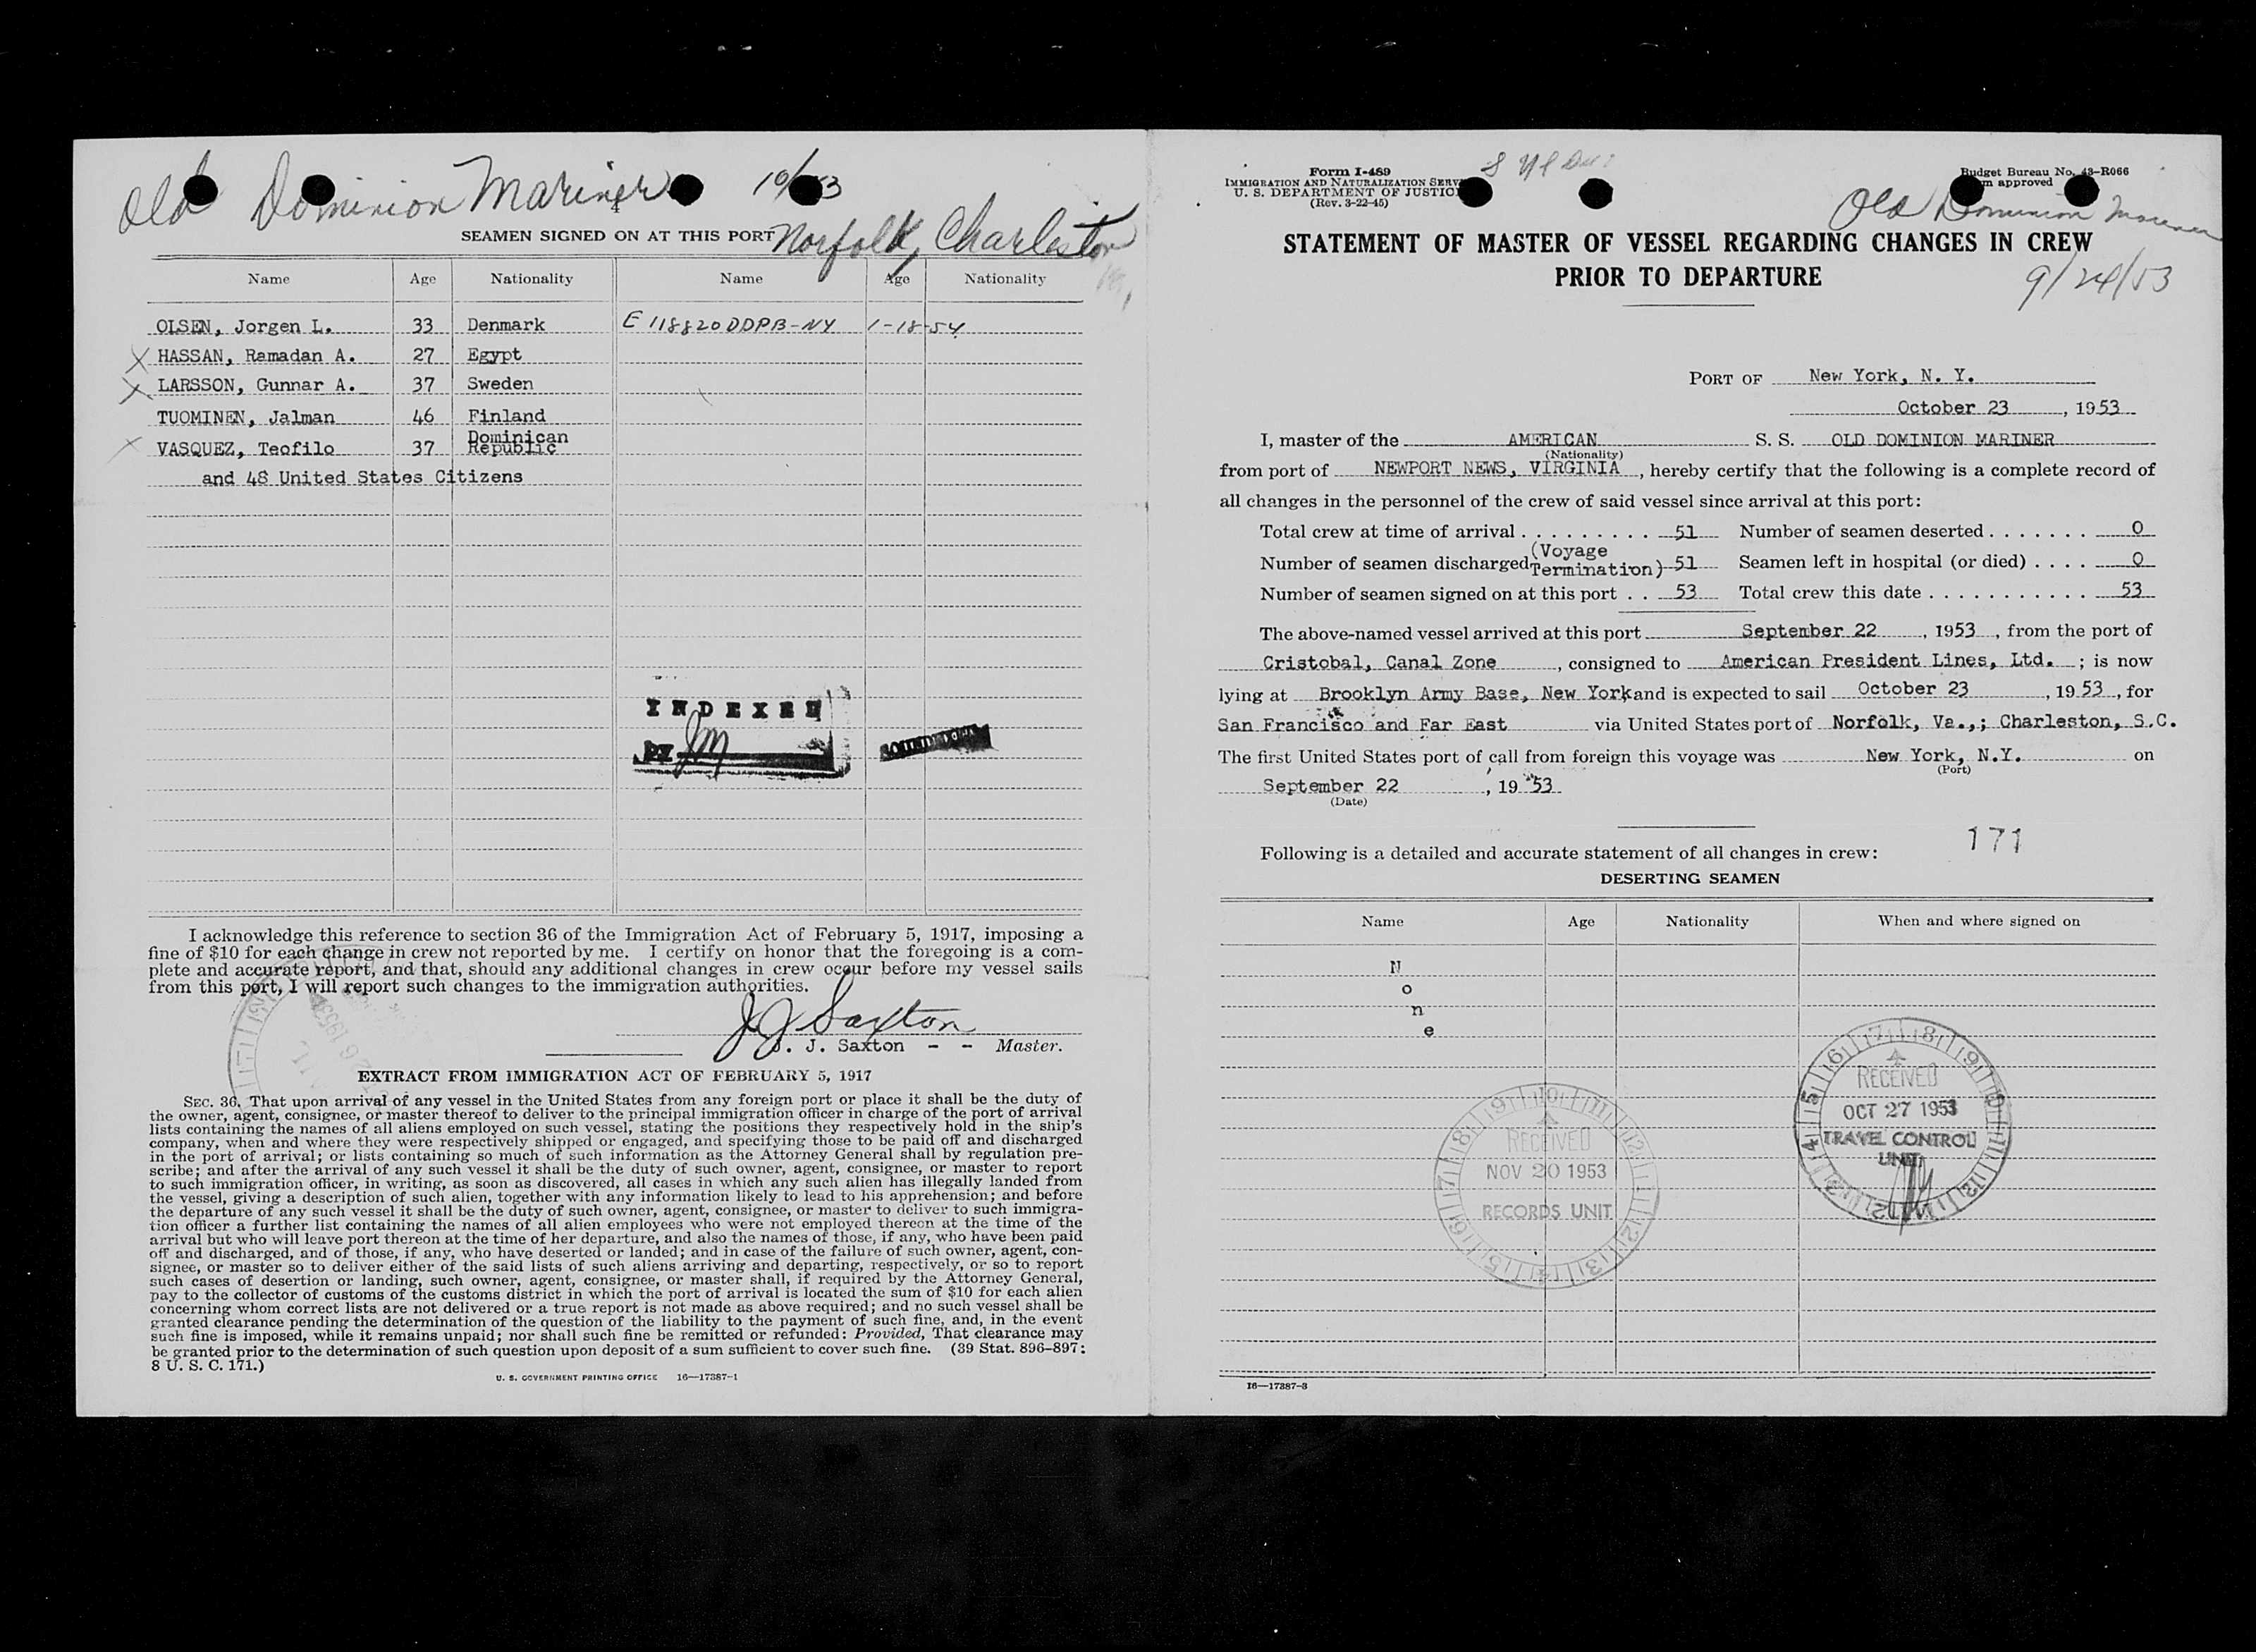 Old Dominion Mariner 10/ 53
SEAMEN SIGNED ON AT THIS PORT Norfolk, Charleston
Name Age Nationality Name Age Nationality
OLSEN, Jorgen L. 33 Denmark E 118820 DDPB-NY 1-18-54
X HASSAN, Ramadan A. 27 Egypt
X LARSSON, Gunnar A. 37 Sweden
TUOMINEN, Jalman 46 Finland
X VASQUEZ, Teofilo 37 Dominican Republic
and 48 United States Citizens
INDEXED
BY JM
I acknowledge this reference to section 36 of the Immigration Act of February 5, 1917, imposing a
fine of $10 for each change in crew not reported by me. I certify on honor that the foregoing is a com-
plete and accurate report, and that, should any additional changes in crew occur before my vessel sails
from this port, I will report such changes to the immigration authorities.
J J Saxton
J. J. Saxton - - Master.
EXTRACT FROM IMMIGRATION ACT OF FEBRUARY 5, 1917
SEC. 36. That upon arrival of any vessel in the United States from any foreign port or place it shall be the duty of
the owner, agent, consignee, or master thereof to deliver to the principal immigration officer in charge of the port of arrival
lists containing the names of all aliens employed on such vessel, stating the positions they respectively hold in the ship's
company, when and where they were respectively shipped or engaged, and specifying those to be paid off and discharged
in the port of arrival; or lists containing so much of such information as the Attorney General shall by regulation pre-
scribe; and after the arrival of any such vessel it shall be the duty of such owner, agent, consignee, or master to report
to such immigration officer, in writing, as soon as discovered, all cases in which any such alien has illegally landed from
the vessel, giving a description of such alien, together with any information likely to lead to his apprehension; and before
the departure of any such vessel it shall be the duty of such owner, agent, consignee, or master to deliver to such immigra-
tion officer a further list containing the names of all alien employees who were not employed thereon at the time of the
arrival but who will leave port thereon at the time of her departure, and also the names of those, if any, who have been paid
off and discharged, and of those, if any, who have deserted or landed; and in case of the failure of such owner, agent, con-
signee, or master so to deliver either of the said lists of such aliens arriving and departing, respectively, or so to report
such cases of desertion or landing, such owner, agent, consignee, or master shall, if required by the Attorney General,
pay to the collector of customs of the customs district in which the port of arrival is located the sum of $10 for each alien
concerning whom correct lists are not delivered or a true report is not made as above required; and no such vessel shall be
granted clearance pending the determination of the question of the liability to the payment of such fine, and, in the event
such fine is imposed, while it remains unpaid; nor shall such fine be remitted or refunded: Provided, That clearance may
be granted prior to the determination of such question upon deposit of a sum sufficient to cover such fine. (39 Stat. 896-897:
8 U. S. C. 171.)
U. S. GOVERNMENT PRINTING OFFICE 16—17387-1
Form I-489
IMMIGRATION AND NATURALIZATION SERV
U. S. DEPARTMENT OF JUSTIC
(Rev. 3-22-45)
Budget Bureau No. 43-R066
approved
Old Dominion Mariner
STATEMENT OF MASTER OF VESSEL REGARDING CHANGES IN CREW
PRIOR TO DEPARTURE
9/24/53
PORT OF New York, N. Y.
October 23, 1953
I, master of the AMERICAN S. S. OLD DOMINION MARINER
(Nationality)
from port of NEWPORT NEWS, VIRGINIA, hereby certify that the following is a complete record of
all changes in the personnel of the crew of said vessel since arrival at this port:
Total crew at time of arrival . . . . . . . . . 51 Number of seamen deserted . . . . . . . 0
Number of seamen discharged (Voyage Termination) 51 Seamen left in hospital (or died) . . . . 0
Number of seamen signed on at this port . . 53 Total crew this date . . . . . . . . . . . 53
The above-named vessel arrived at this port September 22, 1953, from the port of
Cristobal, Canal Zone, consigned to American President Lines, Ltd. ; is now
lying at Brooklyn Army Base, New York and is expected to sail October 23, 1953, for
San Francisco and Far East via United States port of Norfolk, Va.,; Charleston, S.C.
The first United States port of call from foreign this voyage was New York, N.Y. on
(Port)
September 22, 19 53
(Date)
171
Following is a detailed and accurate statement of all changes in crew:
DESERTING SEAMEN
Name Age Nationality When and where signed on
None
RECEIVED
OCT 27 1953
TRAVEL CONTROL
UNIT
RECEIVED
NOV 20 1953
RECORDS UNIT
16—17387-3